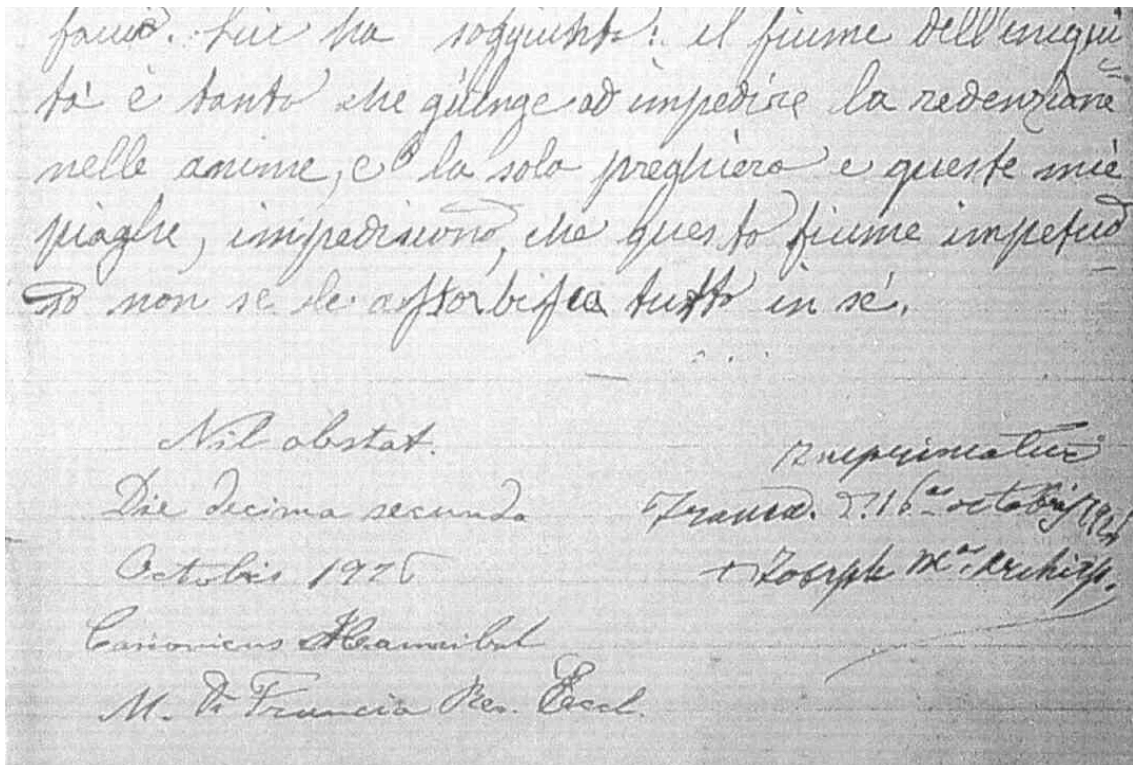 ha soggiunto: il fiume dell'iniqui
tà è tanto che giunge ad impedire la redenzione
nelle anime, e la sola preghiera e queste mie
piaghe, impediscono, che questo fiume impetuo
so non se le assorbisca tutto in sé.
Nil obstat.
Die decima secunda
Octobis 1926
Canonicus Hannibal
M. Di Francia Rev. Eccl.
Imprimatur
d. 16 octobis 1926
+ Joseph M.as Archiep.